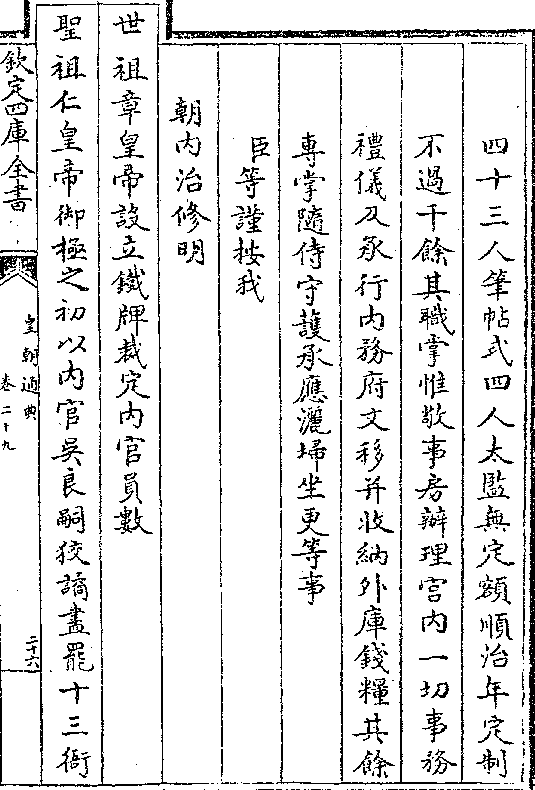 四十三人筆帖式四人太監無定額順治年定制
不過千餘其職掌惟敬事房辦理宮内一切事務
禮儀及承行内務府文移并收納外庫錢糧其餘
專掌隨侍守護承應灑埽坐更等事
臣等謹按我
朝内治修明
世祖章皇帝設立鐵牌裁定内官員數
聖祖仁皇帝御極之初以内官吳良嗣狡譎盡罷十三衙
欽定四庫全書
皇朝通典
卷二十九
二十六